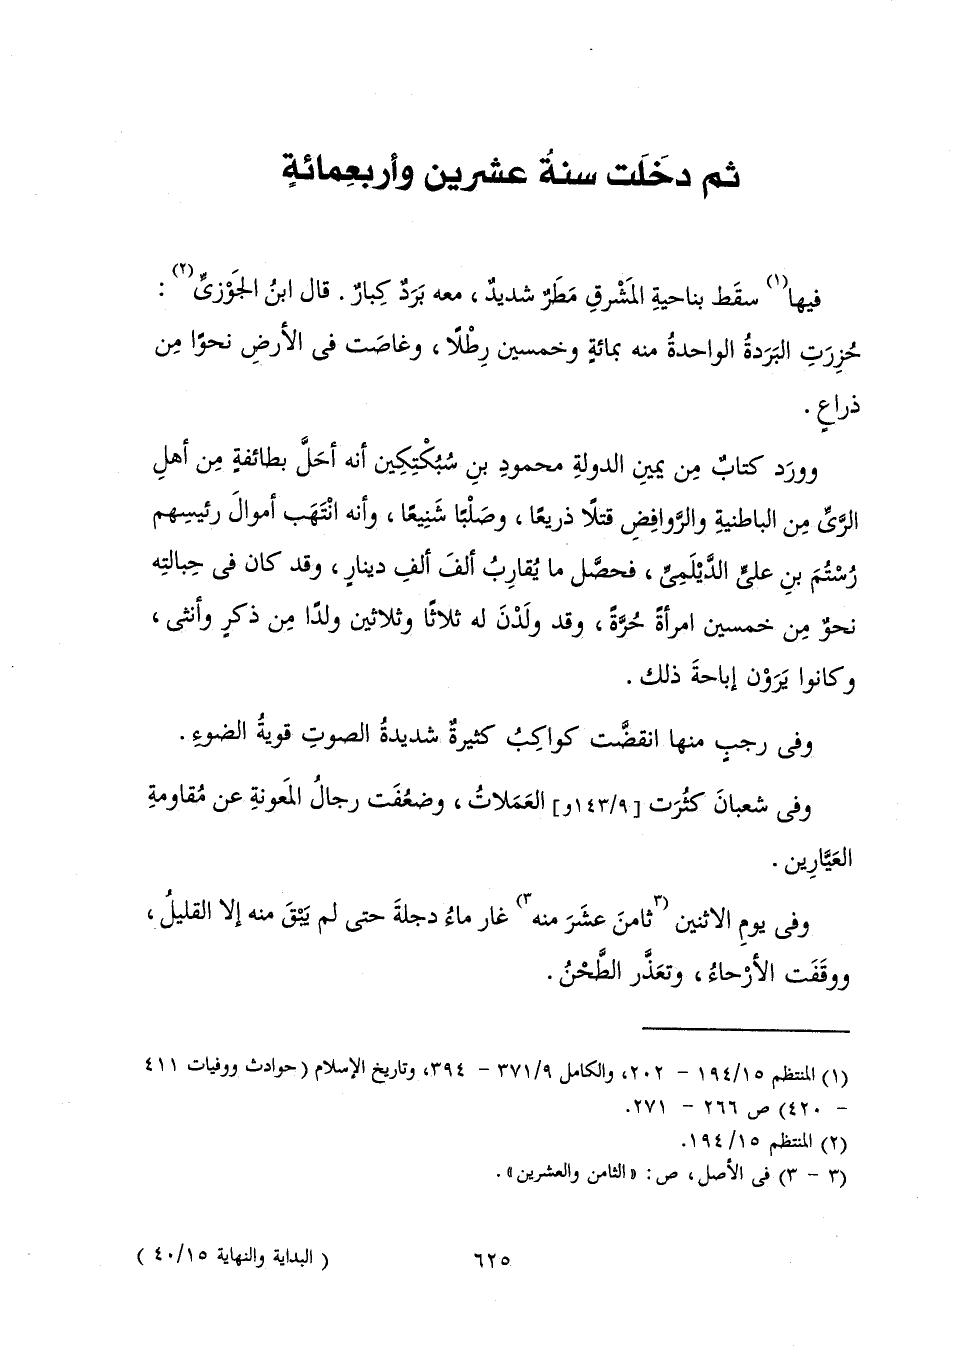 ثم دخَلَت سنةُ عشرين وأربعِمائةٍ
فيها(١) سقَط بناحيةِ المَشْرقِ مَطَرٌ شديدٌ ، معه بَرَدٌ كِبارٌ . قال ابنُ الجَوْزىِّ(٢) :
حُزِرَتِ البَرَدةُ الواحدةُ منه بمائةٍ وخمسين رِطْلًا ، وغاصَت فى الأرضِ نحوًا مِن
ذراعٍ .
وورَد كتابٌ مِن يمينِ الدولةِ محمودِ بنِ سُبُكْتِكِين أنه أحَلَّ بطائفةٍ مِن أهلِ
الرَّىِّ مِن الباطنيةِ والرَّوافِضِ قتلًا ذريعًا ، وصَلْبًا شَنِيعًا ، وأنه انْتَهَب أموالَ رئيسِهم
رُسْتُمَ بنِ علىٍّ الدَّيْلَمِىِّ ، فحصَّل ما يُقارِبُ ألفَ ألفِ دينارٍ ، وقد كان فى حِبالتِه
نحوٌ مِن خمسين امرأةً حُرَّةً ، وقد ولَدْنَ له ثلاثًا وثلاثين ولدًا مِن ذكرٍ وأنثى ،
وكانوا يَرَوْن إباحةَ ذلك .
وفى رجبٍ منها انقضَّت كواكِبُ كثيرةٌ شديدةُ الصوتِ قويةُ الضوءِ .
وفى شعبانَ كثُرَت [١٤٣/٩و] العَمَلاتُ ، وضعُفَت رجالُ المَعونةِ عن مُقاومةِ
العَيَّارِين .
وفى يومِ الاثنين (٣ثامنَ عشَرَ منه٣) غار ماءُ دجلةَ حتى لم يَبْقَ منه إلا القليلُ ،
ووقَفَت الأرْحاءُ ، وتعَذَّر الطَّحْنُ .
(١) المنتظم ١٩٤/١٥ - ٢٠٢، والكامل ٣٧١/٩ - ٣٩٤، وتاريخ الإسلام (حوادث ووفيات ٤١١
- ٤٢٠) ص ٢٦٦ - ٢٧١.
(٢) المنتظم ١٩٤/١٥.
(٣ - ٣) فى الأصل ، ص : «الثامن والعشرين» .
٦٢٥ ( البداية والنهاية ٤٠/١٥ )